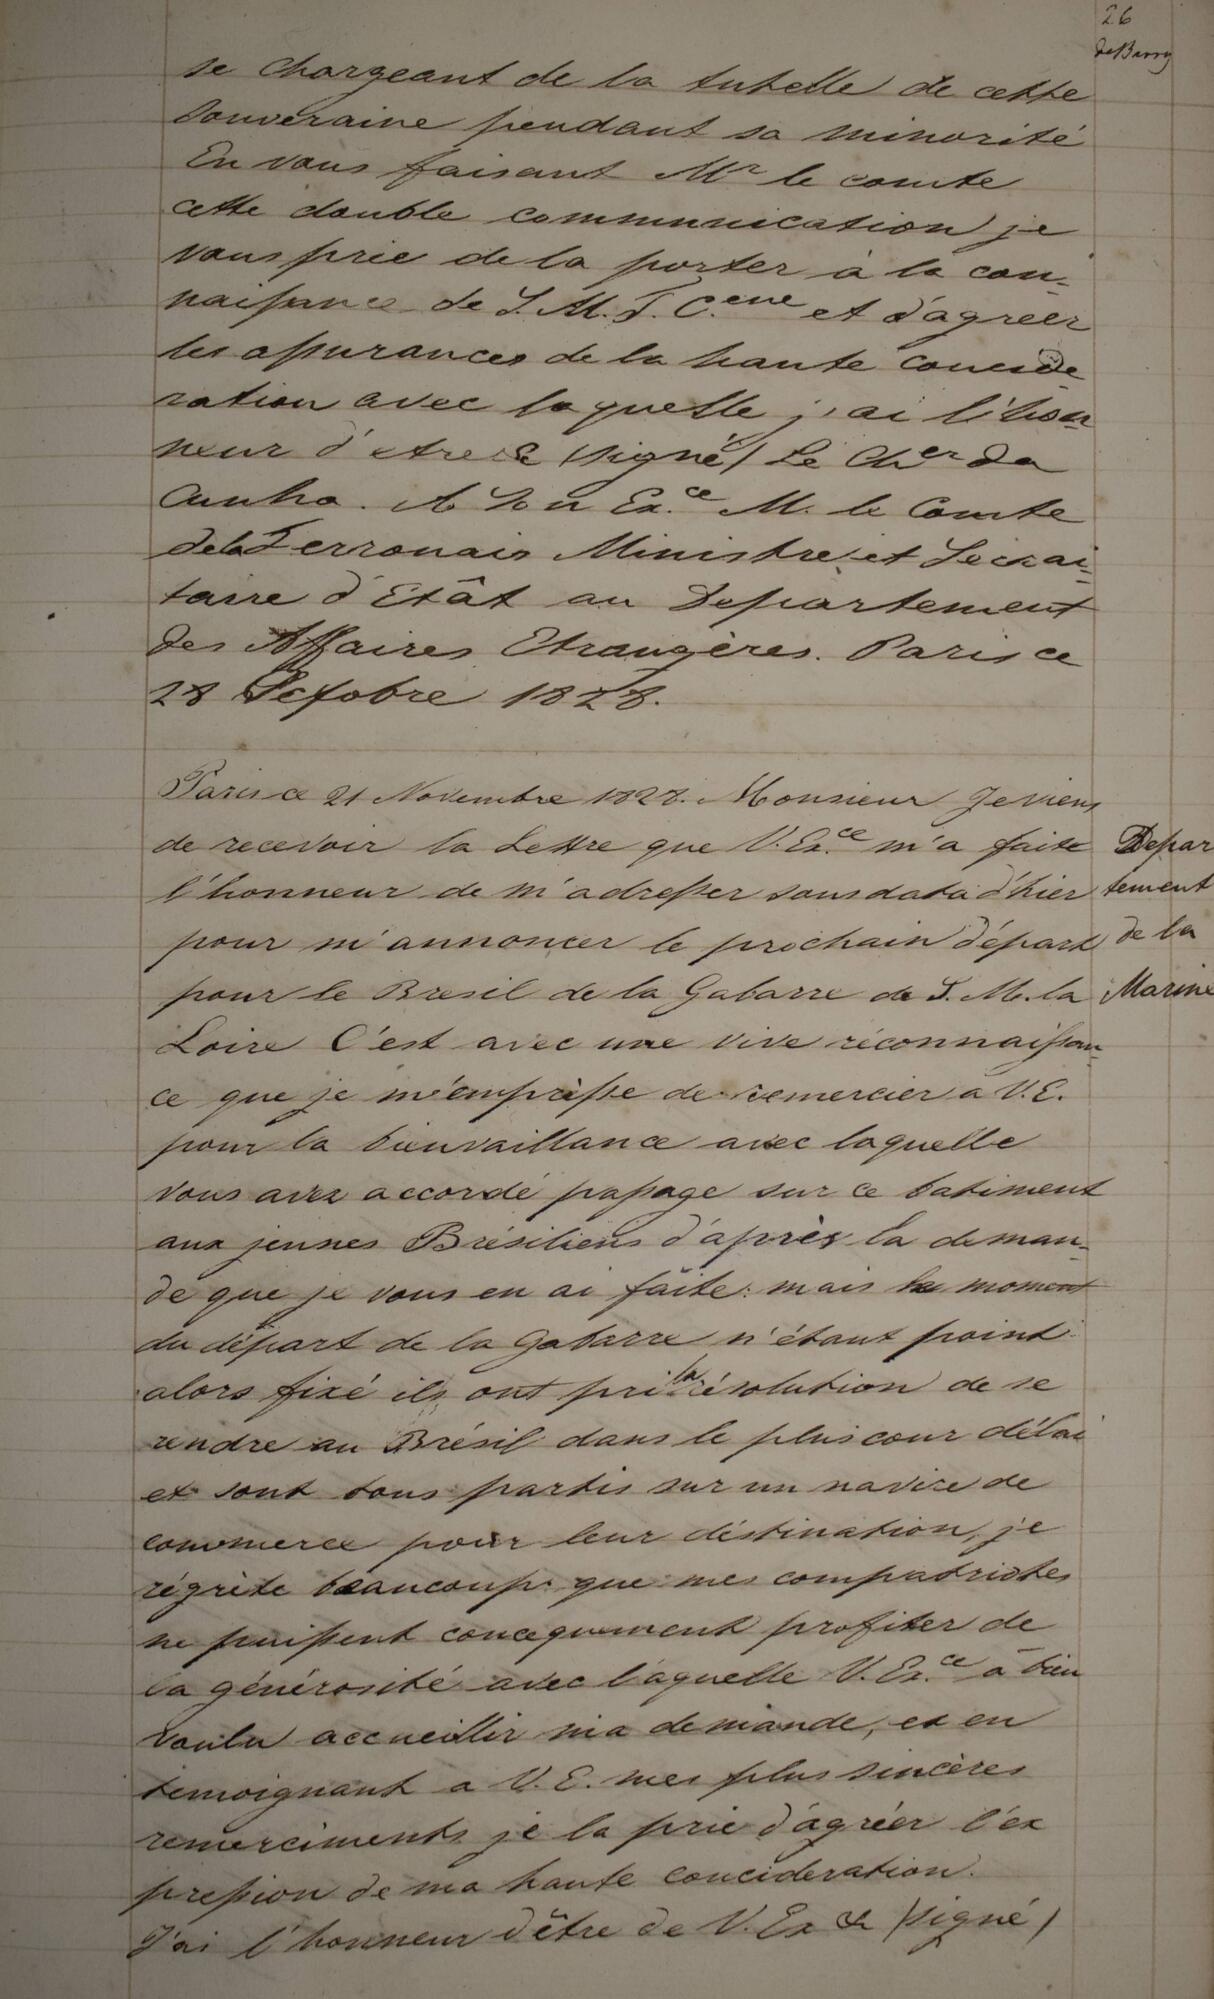 26
deBarry
se chargeant de la tutelle de cette
souveraine pendant sa minorité
En vous faisant Mr le comte
cette double communication je
vous prie de la porter à la con-
naissance de S. M. T. C.ene et d'agreer
les assurances de la haute concide
ration avec laquelle j'ai l'hon
neur d'etre & (signé) Le Cher da
Cunha. A Son Ex.ce M. le Comte
de la Ferronais Ministre et Secrai-
taire d'Etât au Departement
des Affaires Etrangères. Paris ce
28 Octobre 1828.
Paris ce 21 Novembre 1828. Monsieur Je viens
de recevoir la Lettre que V. Ex.ce m'a faite
l'honneur de m'adresser sous data d'hier
pour m'annoncer le prochain départ
pour le Bresil de la Gabarre de S. M. la
Loire C'est avec une vive réconnaissan-
ce que je m'empresse de remercier a V. E.
pour la bienvaillance avec laquelle
vous avez accordé passage sur ce batiment
aux jeunes Brésiliens d'après la deman-
de que je vous en ai faite: mais le moment
du départ de la Gabarre n'étant point
alors fixé ils ont pri la résolution de se
rendre au Brésil dans le plus cour délai
et sont tous partis sur un navire de
commerce pour leur déstination, je
régrète beaucoup que mes compatriotes
ne puissent concequement profiter de
la générosité avec laquelle V. Ex.ce a bien
voulu accueillir ma demande, et en
temoignant a V. E. mes plus sincères
remerciments je la prie d'agréer l'ex
pression de ma haute concideration.
J'ai l'honneur d'être de V. Ex & (signé)
Depar
tement
de la
Marine